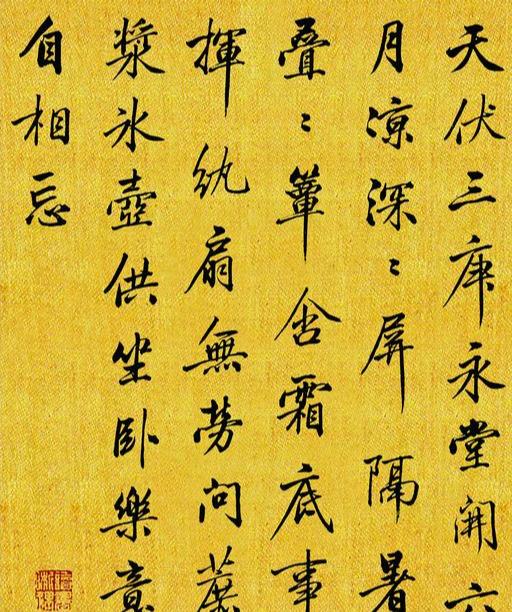 天伏三庚永堂開
月涼深〻屏隔暑
叠〻簟含霜底事
揮紈扇無勞問蔗
漿氷壺供坐臥樂意
自相忘